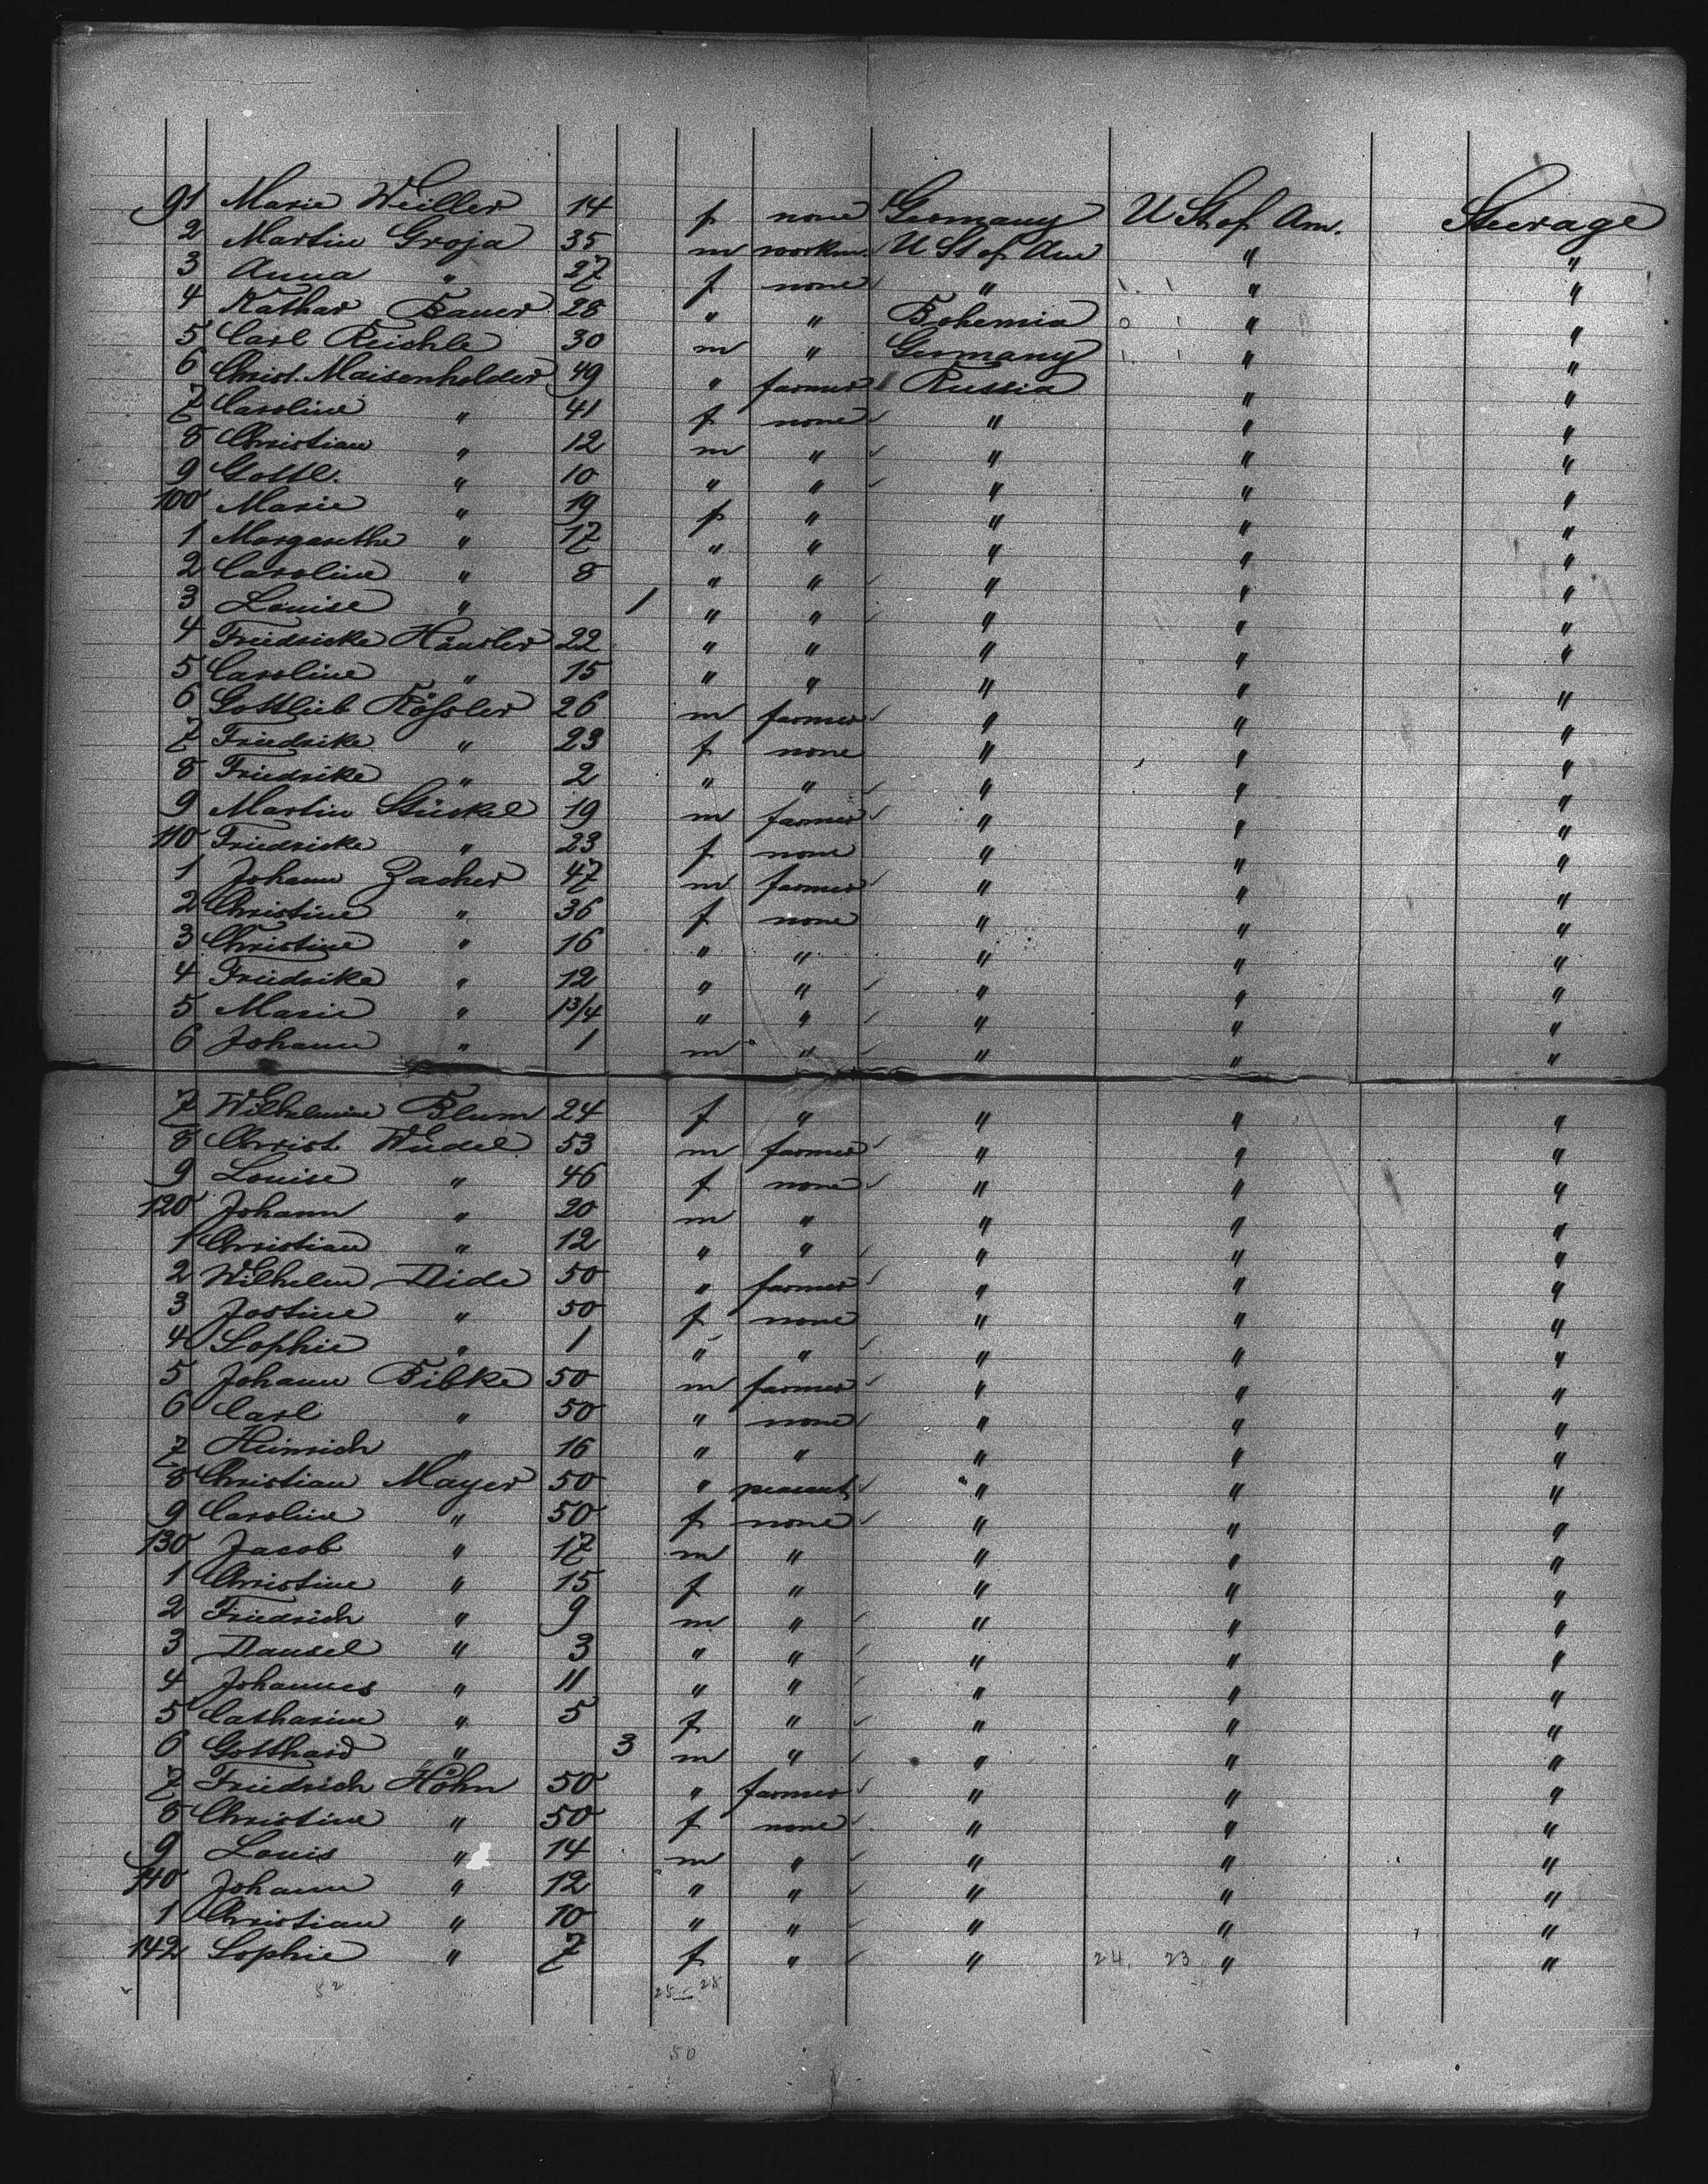 91 Marie Weiller 14 f none Germany U St of Am. Steerage
2 Martin Groja 35 m workm. U St of Am " "
3 Anna " 27 f none " " "
4 Kathar Bauer 28 " " Bohemia " "
5 Carl Reichle 30 m " Germany " "
6 Christ. Maisenhelder 49 " farmer Russia " "
7 Caroline " 41 f none " " "
8 Christian " 12 m " " " "
9 Gottl. " 10 " " " " "
100 Marie " 19 f " " " "
1 Margarethe " 17 " " " " "
2 Caroline " 8 " " " " "
3 Louise " 1 " " " " "
4 Friedricke Häusler 22 " " " " "
5 Caroline " 15 " " " " "
6 Gottlieb Rößler 26 m farmer " " "
7 Friedrike " 23 f none " " "
8 Friedrike " 2 " " " " "
9 Martin Stückel 19 m farmer " " "
110 Friedricke " 23 f none " " "
1 Johann Zacher 47 m farmer " " "
2 Christine " 36 f none " " "
3 Christine " 16 " " " " "
4 Friedrike " 12 " " " " "
5 Marie " 1 3/4 " " " " "
6 Johann " 1 m " " " "
7 Wilhelmine Blum 24 f " " " "
8 Christ. Wiedel 53 m farmer " " "
9 Louise " 46 f none " " "
120 Johann " 20 m " " " "
1 Christian " 12 " " " " "
2 Wilhelm Dide 50 " farmer " " "
3 Jostine " 50 f none " " "
4 Sophie " 1 " " " " "
5 Johann Bibke 50 m farmer " " "
6 Carl " 50 " none " " "
7 Heinrich " 16 " " " " "
8 Christian Mayer 50 " peasant " " "
9 Caroline " 50 f none " " "
130 Jacob " 17 m " " " "
1 Christine " 15 f " " " "
2 Friedrich " 9 m " " " "
3 Dausel " 3 " " " " "
4 Johannes " 11 " " " " "
5 Catharine " 5 f " " " "
6 Gotthard " 3 m " " " "
7 Friedrich Höhn 50 " farmer " " "
8 Christine " 50 f none " " "
9 Louis " 14 m " " " "
140 Johann " 12 " " " " "
1 Christian " 10 " " " " "
142 Sophie " 7 f " " 24. 23 " "
52 25 28
50